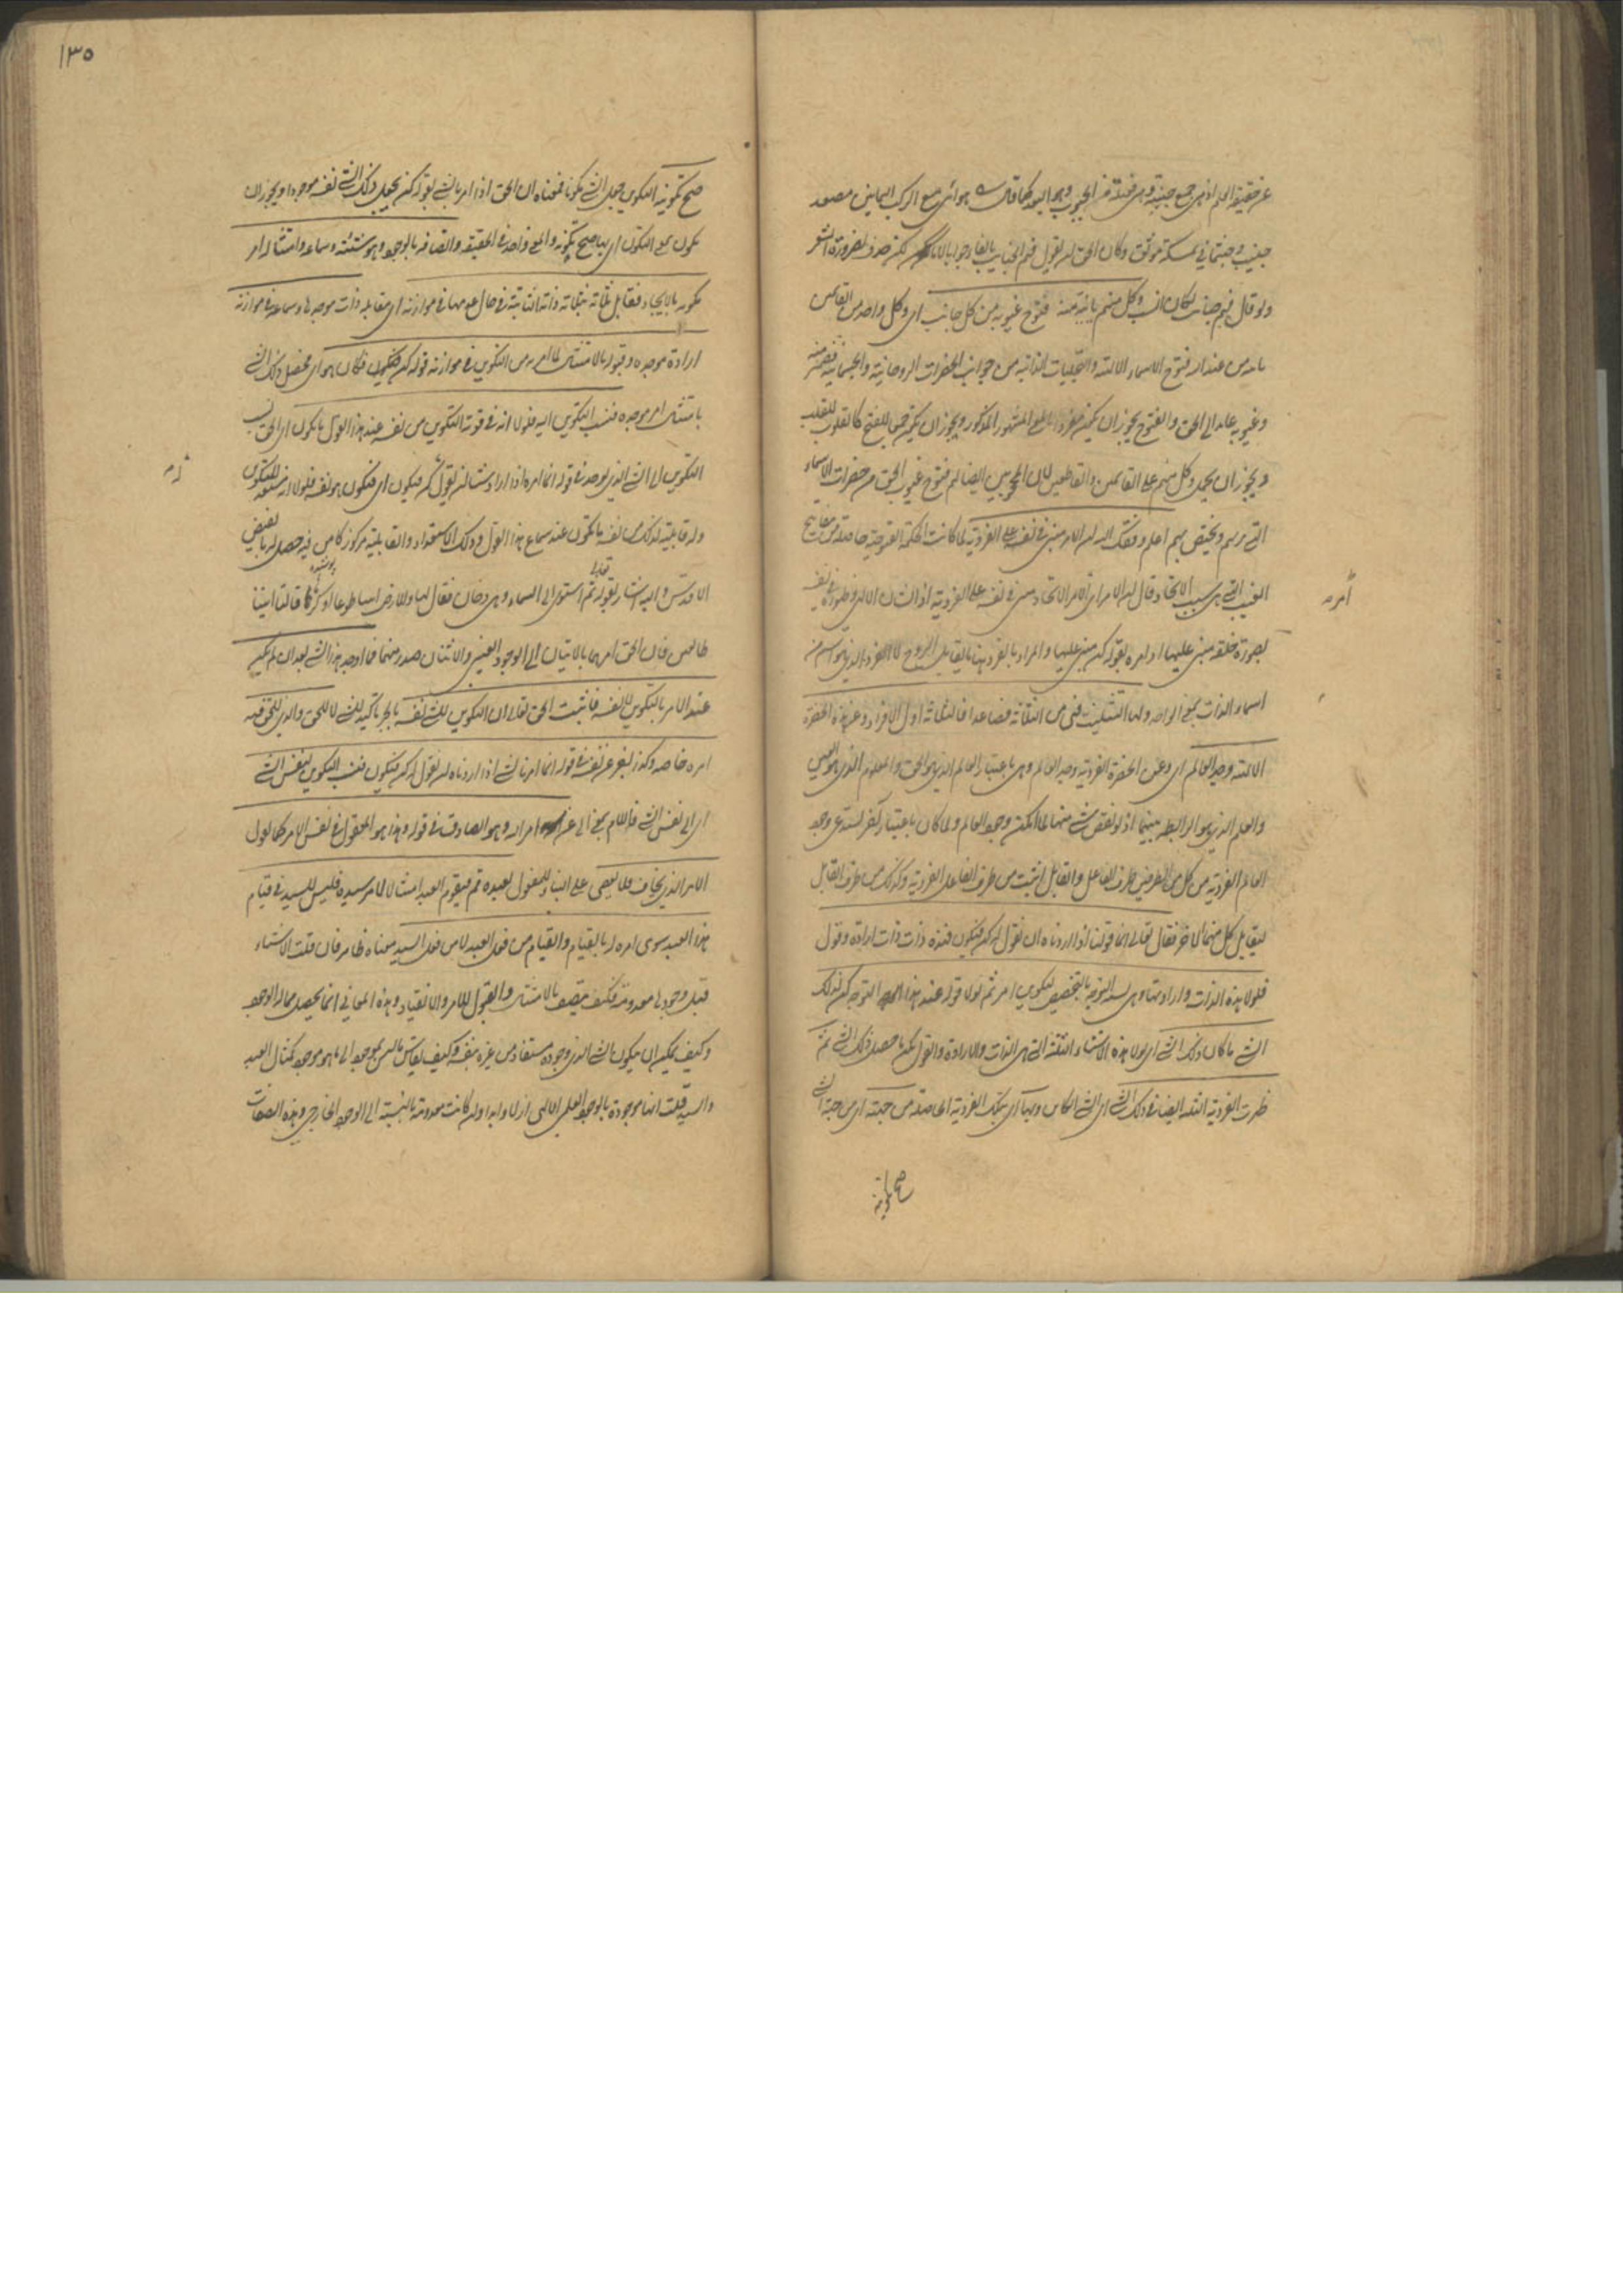 عن حقيقة العلم اذ هي جمع جنيبة وهي فعيلة من الجنوب وهو البعد كما قال شعر هواي مع الركب اليمانين مصعد
جنيب وجثماني بمكة موثق وكان الحق ان يقول فهم الجنايب بالفاء جوابا لاما لكن حذف لضرورة الشعر
ولو قال فهم جنايب لكان انسب وكل منهم يأتيه منه فتوح غيوبه من كل جانب اي وكل واحد من القائمين
يأتيه من عند الله فتوح الاسماء الالهية والتجليات الذاتية من جوانب الحضرات الروحانية والجسمانية فضمير منه
وغيوبه عائد الى الحق والفتوح يجوز ان يكون مفردا بالمعنى المشهور المذكور ويجوز ان يكون جمعا للفتح كالقلوب للقلب
ويجوز ان يحمل وكل منهم على القائمين والقاطعين لان المحجوبين ايضا لهم فتوح غيوب الحق من حضرات الاسماء
التي تربهم وتختص بهم اعلم وفقك الله ان الامر مبني في نفسه على الفردية لما كانت الحكمة الفتوحية حاصلة من مفاتيح
الغيب التي هي سبب الايجاد قال ان الامر اي امر الايجاد مبني في نفسه على الفردية اذ الشأن الالهي وظهوره في نفسه
بصورة خلقه مبني عليها او امره بقوله كن مبني عليها والمراد بالفردية هنا ما يقابل الزوج لا الفرد الذي هو اسم من
اسماء الذات بمعنى الواحد ولها التثليث فهي من الثلاثة فصاعدا فالثلاثة اول الافراد وعن هذه الحضرة
الالهية وجد العالم اي وعن الحضرة الفردية وجد العالم وهي باعتبار العالم الذي هو الحق والمعلوم الذي هو العين
والعلم الذي هو الرابطة بينهما اذ لو نقص شيء منها لما امكن وجود العالم ولما كان باعتبار آخر يستدعي وجود
العالم الفردية من كل من الطرفين طرف الفاعل والقابل اثبت من طرف الفاعل الفردية وكذلك من طرف القابل
ليقابل كل منهما الآخر فقال تعالى انما قولنا لشيء اذا اردناه ان نقول له كن فيكون فهذه ذات ذات ارادة وقول
فلولا هذه الذات وارادتها وهي نسبة التوجه بالتخصيص لتكوين امر ثم لولا قوله عند هذا التوجه كن لذلك
الشيء ما كان ذلك الشيء اي لولا هذه الاشياء الثلثة التي هي الذات والارادة والقول بكن ما حصل ذلك الشيء ثم
ظهرت الفردية الثلثية ايضا في ذلك الشيء اي في الشيء الكائن وبها اي بتلك الفردية الحاصلة من جهته اي من جهة الشيء
صح تكوينه
امره
١٣٥
صح تكوينه التكوين جعل الشيء مكونا فمعناه ان الحق اذا امر بالشيء بقوله كن يجعل ذلك الشيء نفسه موجودا ويجوز ان
يكون بمعنى التكون اي بها صح تكونه والمعنى واحد في الحقيقة واتصافه بالوجود وهو شيئيته وسماعه وامتثاله امر
مكونه بالايجاد فقابل ثلاثة بثلاثة ذاته الثابتة في حال عدمها في موازنة اي مقابلة ذات موجدها وسماعه في موازنة
ارادة موجده وقبوله بالامتثال لما امر به من التكوين في موازنة قوله كن فيكون فكان هو اي فحصل ذلك الشيء
بامتثال امر موجده فنسب التكوين اليه فلولا انه في قوته التكوين من نفسه عند هذا القول ما تكون اي الحق نسب
التكوين الى الشيء الذي يوجد في قوله انما امره اذا اراد شيئا ان يقول له كن فيكون اي فيكون هو نفسه فلولا انه مستعد للتكوين
وله قابلية لذلك من نفسه ما تكون عند سماع هذا القول وذلك الاستعداد والقابلية مركوز كامن فيه حصل له بالفيض
الاقدس واليه اشار بقوله تعالى ثم استوى الى السماء وهي دخان فقال لها وللارض ائتيا طوعا او كرها قالتا اتينا
طائعين فان الحق امرهما بالاتيان الى الوجود العيني والاتيان صدر منهما فما اوجد هذا الشيء بعد ان لم يكن
عند الامر بالتكوين الا نفسه فاثبت الحق تعالى ان التكوين للشيء نفسه بالجر تأكيد للشيء لا للحق والذي للحق فيه
امره خاصة وكذا اخبر عن نفسه في قوله انما امرنا لشيء اذا اردناه ان نقول له كن فيكون فنسب التكوين لنفس الشيء
اي الى نفس الشيء فاللام بمعنى الى عن امر الله وهو الصادق في قوله وهذا هو المعقول في نفس الامر كما يقول
الامر الذي يخاف فلا يعصى على البناء للمفعول لعبده قم فيقوم العبد امتثالا لامر سيده فليس للسيد في قيام
هذا العبد سوى امره له بالقيام والقيام من فعل العبد لا من فعل السيد معناه ظاهر فان قلت الاشياء
قبل وجودها معدومة فكيف يتصف بالامتثال والقبول للامر والانقياد وهذه المعاني انما يحصل مما له الوجود
وكيف يمكن ان يكون الشيء الذي وجوده مستفاد من غيره بنفسه وكيف يقاس ما ليس بموجود الى ما هو موجود كمثال العبد
والسيد قلت انها موجودة بالوجود العلمي الالهي ازلا وابدا وان كانت معدومة بالنسبة الى الوجود الخارجي وهذه الصفات
له